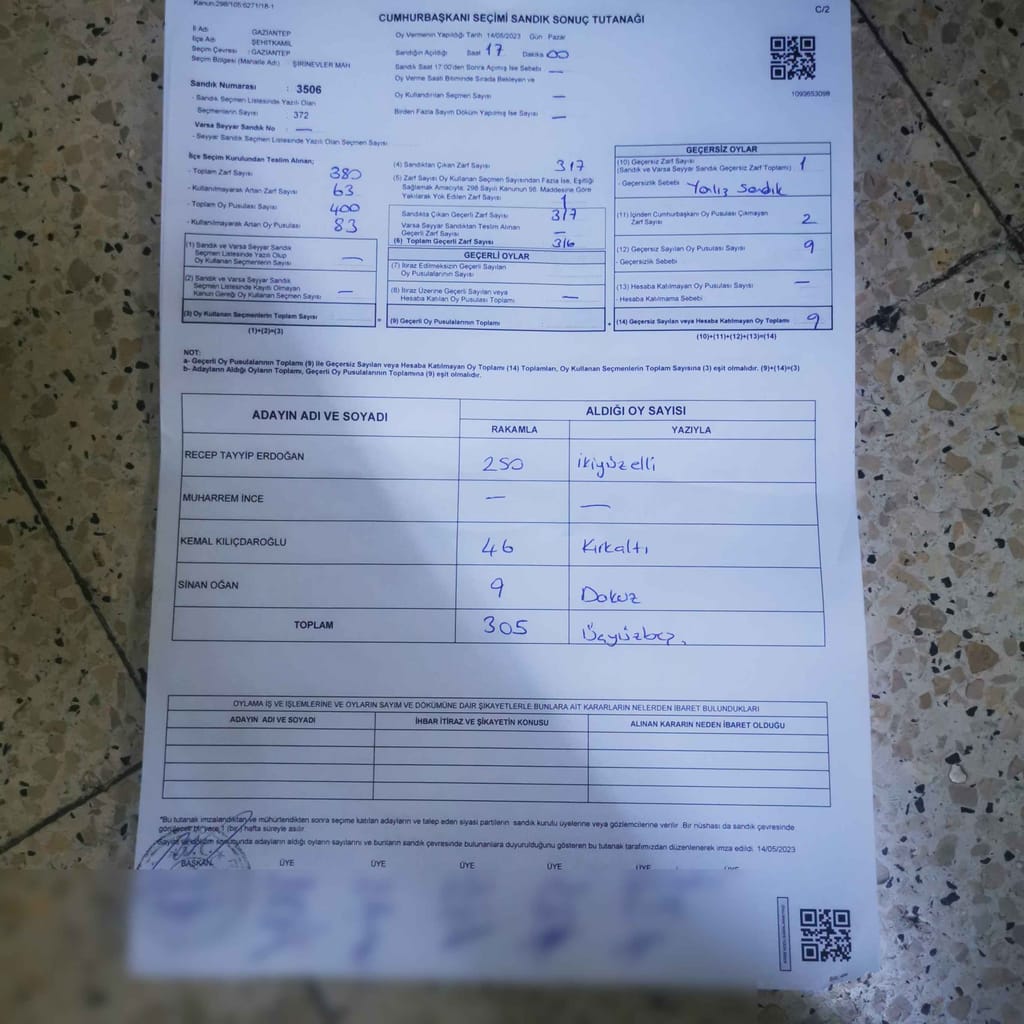 Kanun:298/105:6271/18-1
C/2
CUMHURBAŞKANI SEÇİMİ SANDIK SONUÇ TUTANAĞI
İl Adı : GAZİANTEP
İlçe Adı : ŞEHİTKAMİL
Seçim Çevresi : GAZİANTEP
Seçim Bölgesi (Mahalle Adı) : ŞİRİNEVLER MAH
Sandık Numarası : 3506
- Sandık Seçmen Listesinde Yazılı Olan
Seçmenlerin Sayısı : 372
Varsa Seyyar Sandık No : —
- Seyyar Sandık Seçmen Listesinde Yazılı Olan Seçmen Sayısı
Oy Vermenin Yapıldığı Tarih 14/05/2023 Gün Pazar
Sandığın Açıldığı Saat 17 Dakika 00
Sandık Saat 17:00'den Sonra Açılmış İse Sebebi —
Oy Verme Saati Bitiminde Sırada Bekleyen ve
Oy Kullandırılan Seçmen Sayısı —
Birden Fazla Sayım Döküm Yapılmış İse Sayısı —
1093653098
İlçe Seçim Kurulundan Teslim Alınan;
- Toplam Zarf Sayısı 380
- Kullanılmayarak Artan Zarf Sayısı 63
- Toplam Oy Pusulası Sayısı 400
- Kullanılmayarak Artan Oy Pusulası 83
(1) Sandık ve Varsa Seyyar Sandık
Seçmen Listesinde Yazılı Olup
Oy Kullanan Seçmenlerin Sayısı —
(2) Sandık ve Varsa Seyyar Sandık
Seçmen Listesinde Kayıtlı Olmayan
Kanun Gereği Oy Kullanan Seçmen Sayısı —
(3) Oy Kullanan Seçmenlerin Toplam Sayısı
(1)+(2)=(3)
(4) Sandıktan Çıkan Zarf Sayısı 317
(5) Zarf Sayısı Oy Kullanan Seçmen Sayısından Fazla İse, Eşitliği
Sağlamak Amacıyla; 298 Sayılı Kanunun 98. Maddesine Göre
Yakılarak Yok Edilen Zarf Sayısı 1
Sandıkta Çıkan Geçerli Zarf Sayısı 317
Varsa Seyyar Sandıktan Teslim Alınan
Geçerli Zarf Sayısı —
(6) Toplam Geçerli Zarf Sayısı 316
GEÇERLİ OYLAR
(7) İtiraz Edilmeksizin Geçerli Sayılan
Oy Pusulalarının Sayısı
(8) İtiraz Üzerine Geçerli Sayılan veya
Hesaba Katılan Oy Pusulası Toplamı —
= (9) Geçerli Oy Pusulalarının Toplamı
GEÇERSİZ OYLAR
(10) Geçersiz Zarf Sayısı 1
(Sandık ve Varsa Seyyar Sandık Geçersiz Zarf Toplamı)
- Geçersizlik Sebebi Yanlız Sandık
(11) İçinden Cumhurbaşkanı Oy Pusulası Çıkmayan
Zarf Sayısı 2
(12) Geçersiz Sayılan Oy Pusulası Sayısı 9
- Geçersizlik Sebebi
(13) Hesaba Katılmayan Oy Pusulası Sayısı —
- Hesaba Katılmama Sebebi
+ (14) Geçersiz Sayılan veya Hesaba Katılmayan Oy Toplamı 9
(10)+(11)+(12)+(13)=(14)
NOT:
a- Geçerli Oy Pusulalarının Toplamı (9) ile Geçersiz Sayılan veya Hesaba Katılmayan Oy Toplamı (14) Toplamları, Oy Kullanan Seçmenlerin Toplam Sayısına (3) eşit olmalıdır. (9)+(14)=(3)
b- Adayların Aldığı Oyların Toplamı, Geçerli Oy Pusulalarının Toplamına (9) eşit olmalıdır.
ADAYIN ADI VE SOYADI
ALDIĞI OY SAYISI
RAKAMLA YAZIYLA
RECEP TAYYİP ERDOĞAN 250 ikiyüzelli
MUHARREM İNCE — —
KEMAL KILIÇDAROĞLU 46 Kırkaltı
SİNAN OĞAN 9 Dokuz
TOPLAM 305 Üçyüzbeş.
OYLAMA İŞ VE İŞLEMLERİNE VE OYLARIN SAYIM VE DÖKÜMÜNE DAİR ŞİKAYETLERLE BUNLARA AİT KARARLARIN NELERDEN İBARET BULUNDUKLARI
ADAYIN ADI VE SOYADI İHBAR İTİRAZ VE ŞİKAYETİN KONUSU ALINAN KARARIN NEDEN İBARET OLDUĞU
"Bu tutanak imzalandıktan ve mühürlendikten sonra seçime katılan adayların ve talep eden siyasi partilerin sandık kurulu üyelerine veya gözlemcilerine verilir. Bir nüshası da sandık çevresinde
görülecek bir yere 1 (bir) hafta süreyle asılır.
adayların aldığı oyların sayılarını ve bunların sandık çevresinde bulunanlara duyurulduğunu gösteren bu tutanak tarafımızdan düzenlenerek imza edildi. 14/05/2023
BAŞKAN ÜYE ÜYE ÜYE ÜYE ÜYE ÜYE